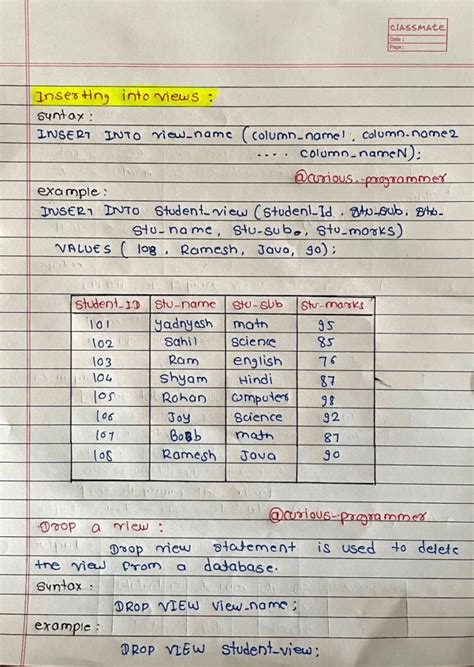 classmate
Date :
Page :
Inserting into views :
suntax :
INSERT INTO view_name (column_name1, column_name2
.... column_nameN);
@curious_programmer
example :
INSERT INTO Student_view (Student_Id, stu_sub, stu-
stu_name, stu_sub, stu_marks)
VALUES ( 108, Ramesh, Java, 90);
Student_ID stu_name stu_sub stu_marks
101 yadnyesh math 95
102 Sahil science 85
103 Ram english 76
104 shyam Hindi 87
105 Rohan computer 98
106 Joy science 92
107 Bobb math 87
108 Ramesh Java 90
@curious_programmer
Drop a view :
Drop view statement is used to delete
the view from a database.
suntax :
DROP VIEW view_name;
example :
DROP VIEW student_view;